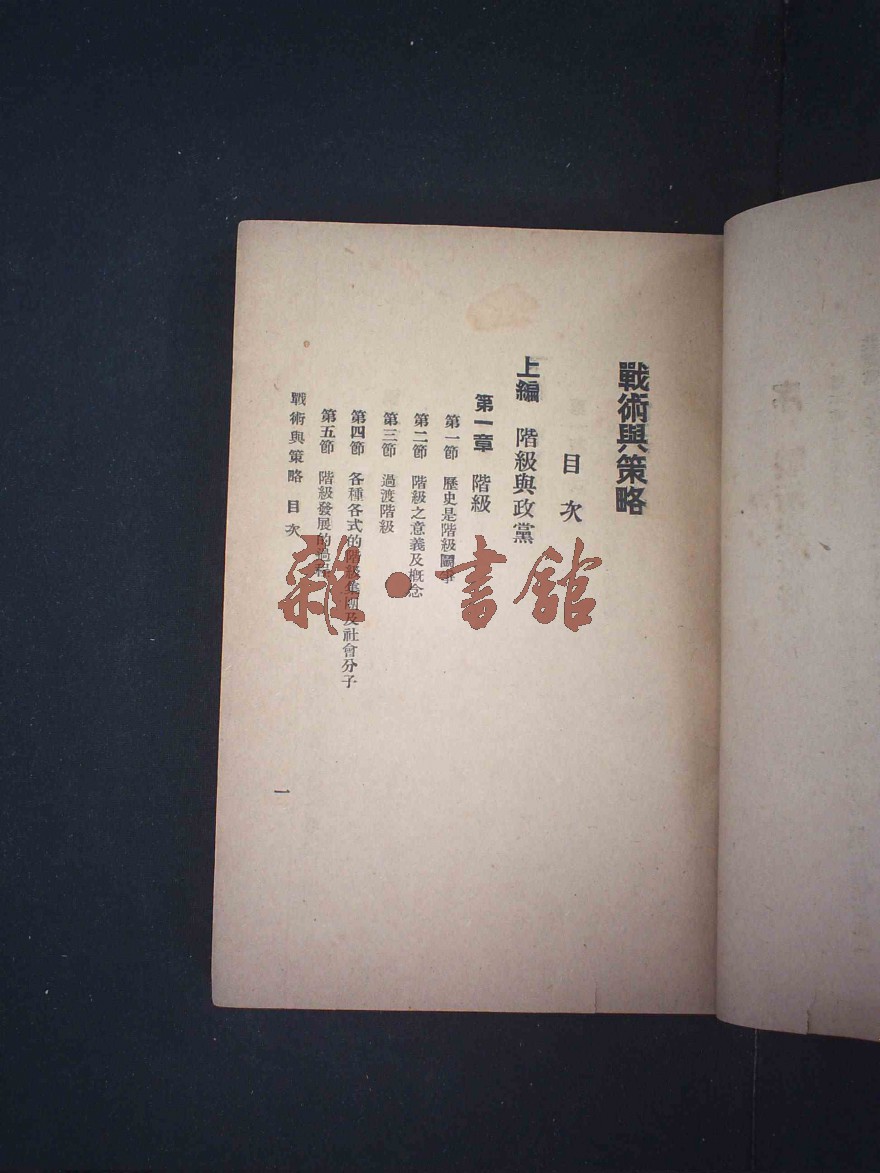 戰術與策略
目次
上編 階級與政黨
第一章 階級
第一節 歷史是階級鬭爭
第二節 階級之意義及概念
第三節 過渡階級
第四節 各種各式的階級集團及社會分子
第五節 階級發展的過程
戰術與策略 目次
一
雜·書館